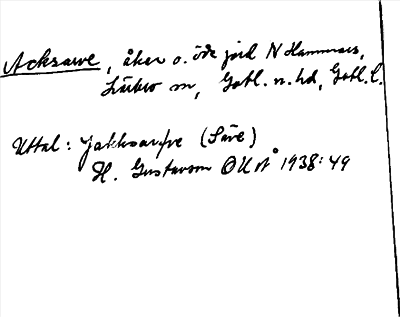 Acksarve, åker o. öde jord N Hammars,
Lärbro sn, Gotl. n. hd, Gotl. l.
Uttal: jakksarve (Säve)
H. Gustavson ÖUÅ 1938:49